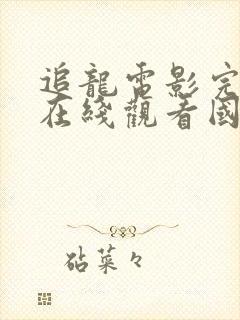 追龍電影完
在綫觀看國
砧菜々